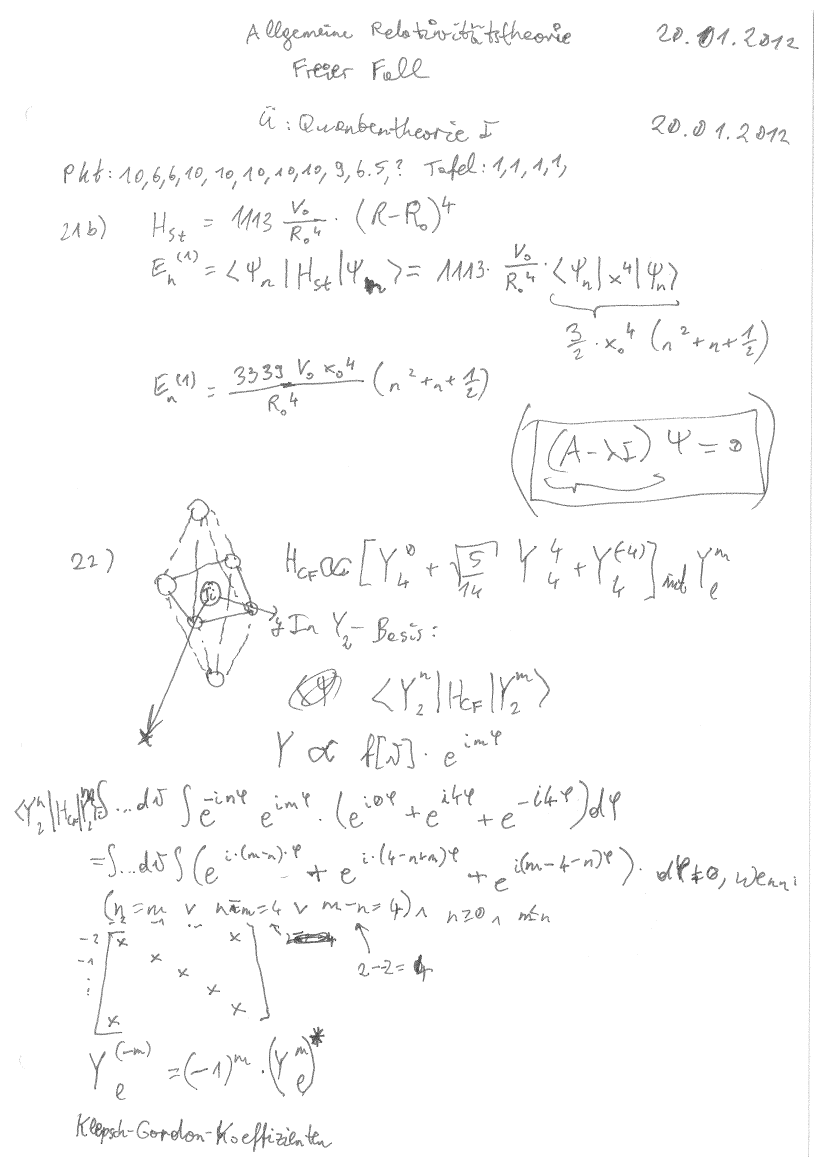 Allgemeine Relativitätstheorie 20.01.2012
Freier Fall
Ü: Quantentheorie I 20.01.2012
Pkt: 10,6,6,10,10,10,10,10,9,6.5,? Tafel: 1,1,1,1,
21b) H_St = 1113 V₀/R₀⁴ · (R-R₀)⁴
E_n^(1) = ⟨Ψ_n|H_St|Ψ_n⟩ = 1113 · V₀/R₀⁴ · ⟨Ψ_n|x⁴|Ψ_n⟩
3/2 · x₀⁴ (n²+n+1/2)
E_n^(1) = 3339 V₀ x₀⁴/R₀⁴ (n²+n+1/2)
((A-λI) Ψ = 0)
22) H_CF ∝ [Y_4^0 + √(5/14) Y_4^4 + Y_4^(-4)] mit Y_e^m
Ti
y In Y₂-Basis:
⟨Y_2^n|H_CF|Y_2^m⟩
x
Y ∝ f[ϑ] · e^{imφ}
⟨Y_2^n|H_CF|Y_2^m⟩= ∫...dϑ ∫ e^{-inφ} e^{imφ} · (e^{i0φ} + e^{i4φ} + e^{-i4φ})dφ
=∫...dϑ ∫(e^{i·(m-n)·φ} + e^{i·(4-n+m)φ} + e^{i(m-4-n)φ}) · dφ ≠ 0, wenn:
(n=m ∨ n-m=4 ∨ m-n=4) ∧
-2 -1 ...
-2 x x
-1 x
⋮ x
x
x x
2--2=4
Y_e^(-m) = (-1)^m · (Y_e^m)*
Klepsch-Gordon-Koeffizienten